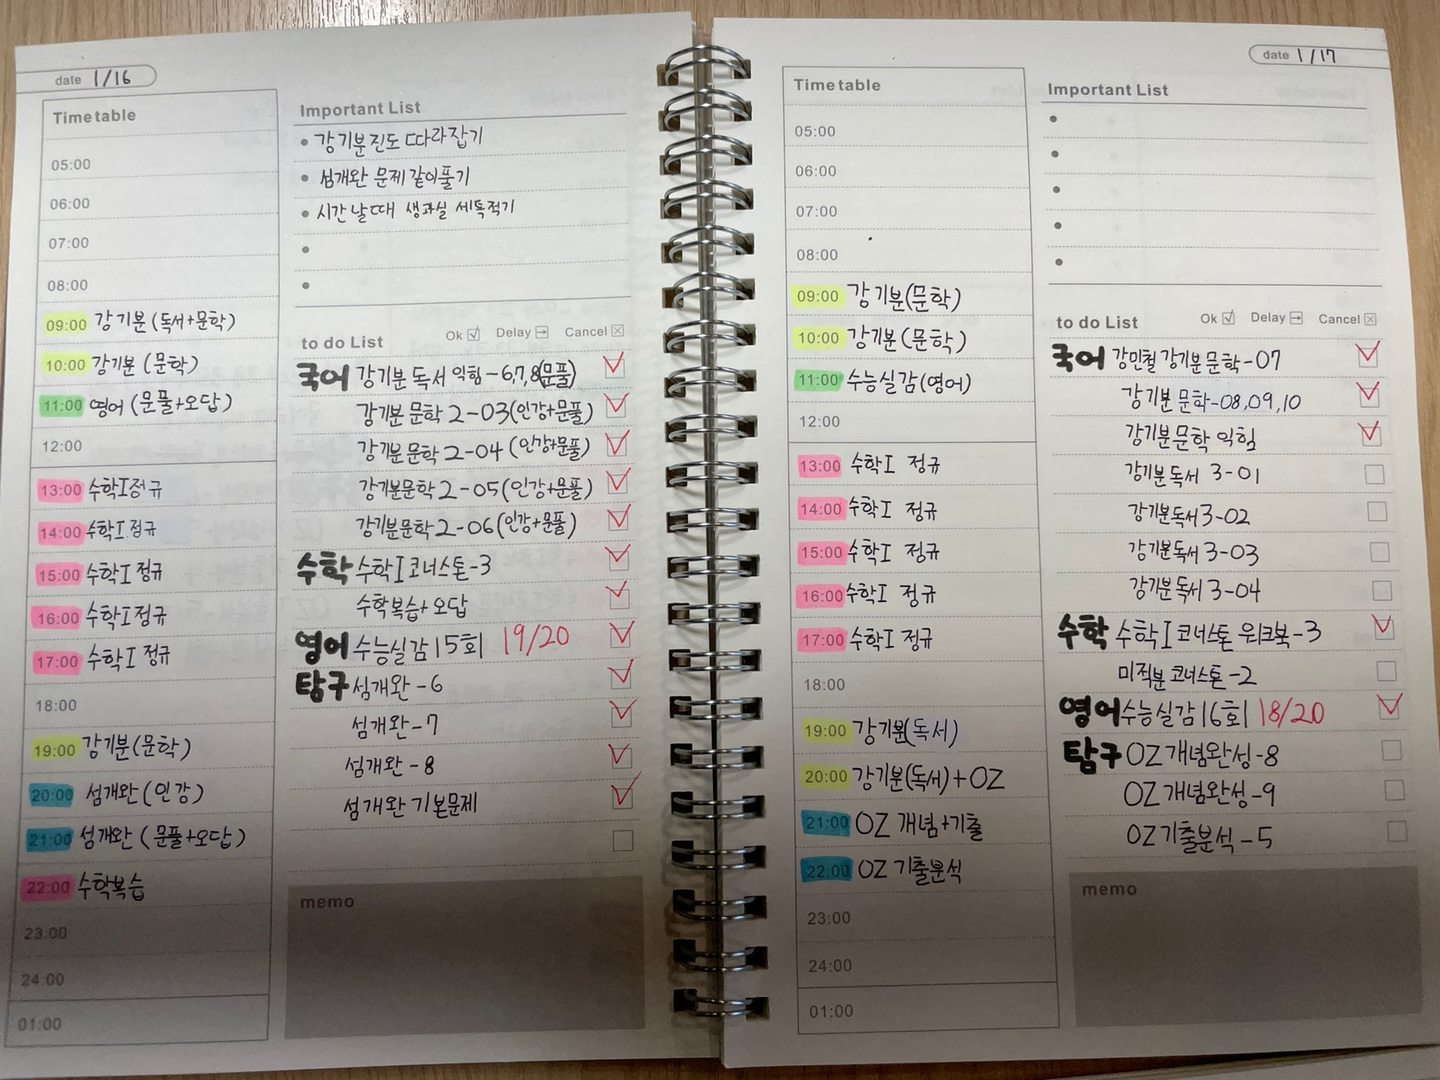 date 1/16
Timetable
05:00
06:00
07:00
08:00
09:00 강기분 (독서+문학)
10:00 강기분 (문학)
11:00 영어 (문풀+오답)
12:00
13:00 수학I정규
14:00 수학I정규
15:00 수학I 정규
16:00 수학I정규
17:00 수학I 정규
18:00
19:00 강기분(문학)
20:00 섬개완(인강)
21:00 섬개완 (문풀+오답)
22:00 수학복습
23:00
24:00
01:00
Important List
• 강기분진도 따라잡기
• 섬개완 문제 같이풀기
• 시간 날때 생과실 세특적기
•
•
to do List Ok Delay Cancel
국어 강기분 독서 익힘-6,7,8(문풀)
강기분 문학 2-03(인강+문풀)
강기분 문학 2-04 (인강+문풀)
강기분문학 2-05(인강+문풀)
강기분문학 2-06(인강+문풀)
수학 수학I코너스톤-3
수학복습+오답
영어 수능실감15회 19/20
탐구 섬개완-6
섬개완-7
섬개완-8
섬개완 기본문제
memo
date 1/17
Timetable
05:00
06:00
07:00
08:00
09:00 강기분(문학)
10:00 강기분(문학)
11:00 수능실감(영어)
12:00
13:00 수학I 정규
14:00 수학I 정규
15:00 수학I 정규
16:00 수학I 정규
17:00 수학I 정규
18:00
19:00 강기분(독서)
20:00 강기분(독서)+OZ
21:00 OZ 개념+기출
22:00 OZ 기출분석
23:00
24:00
01:00
Important List
•
•
•
•
•
to do List Ok Delay Cancel
국어 강민철 강기분 문학-07
강기분 문학-08,09,10
강기분문학 익힘
강기분독서 3-01
강기분독서3-02
강기분독서 3-03
강기분독서 3-04
수학 수학I코너스톤 워크북-3
미적분 코너스톤-2
영어 수능실감16회 18/20
탐구 OZ개념완성-8
OZ개념완성-9
OZ기출분석-5
memo